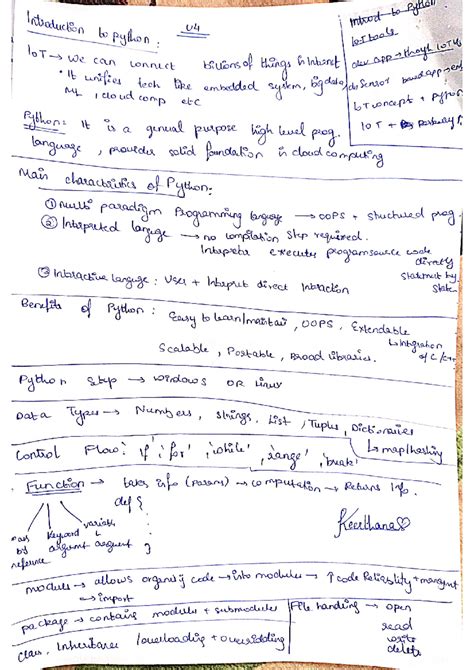 Introduction to python: U4
IoT → we can connect billions of things in Internet
• It unifies tech like embedded system, bigdata,
ML, cloud comp etc
Introd to Python
IoT tools
dev app → though IoT
sensor based app
IoT concept + python
IoT +
Python: It is a genual purpose high level prog.
language, provides solid foundation in cloud computing
Main characteristics of Python:
① Multi paradigm Programming language → OOPS + structured prog.
② Interpreted language → no compilation step required.
Interprets executes program source code
directly
statment by
state
③ Interactive language: User + Interpret direct Interaction
Benefits of Python: Easy to learn/maintain, OOPS, Extendable
↳ Integration
of C/C++
Scalable, Portable, Broad libraries.
Python Step → Windows OR Linux
Data Types → Numbers, Strings, List, Tuples, Dictionaries
↳ map/hashing
Control Flow: 'if', 'for', 'while', 'range', 'break'
Function → takes info (params) → computation → Returns Info.
def {
}
pass by reference
keyword argument
variable argument
Keerthana♡
modules → allows organizing code → into modules → ↑ code Reliability + managmt
→ import
package → contains modules + submodules
File handling → open
read
write
delete
class, Inheritance / overloading + overridding